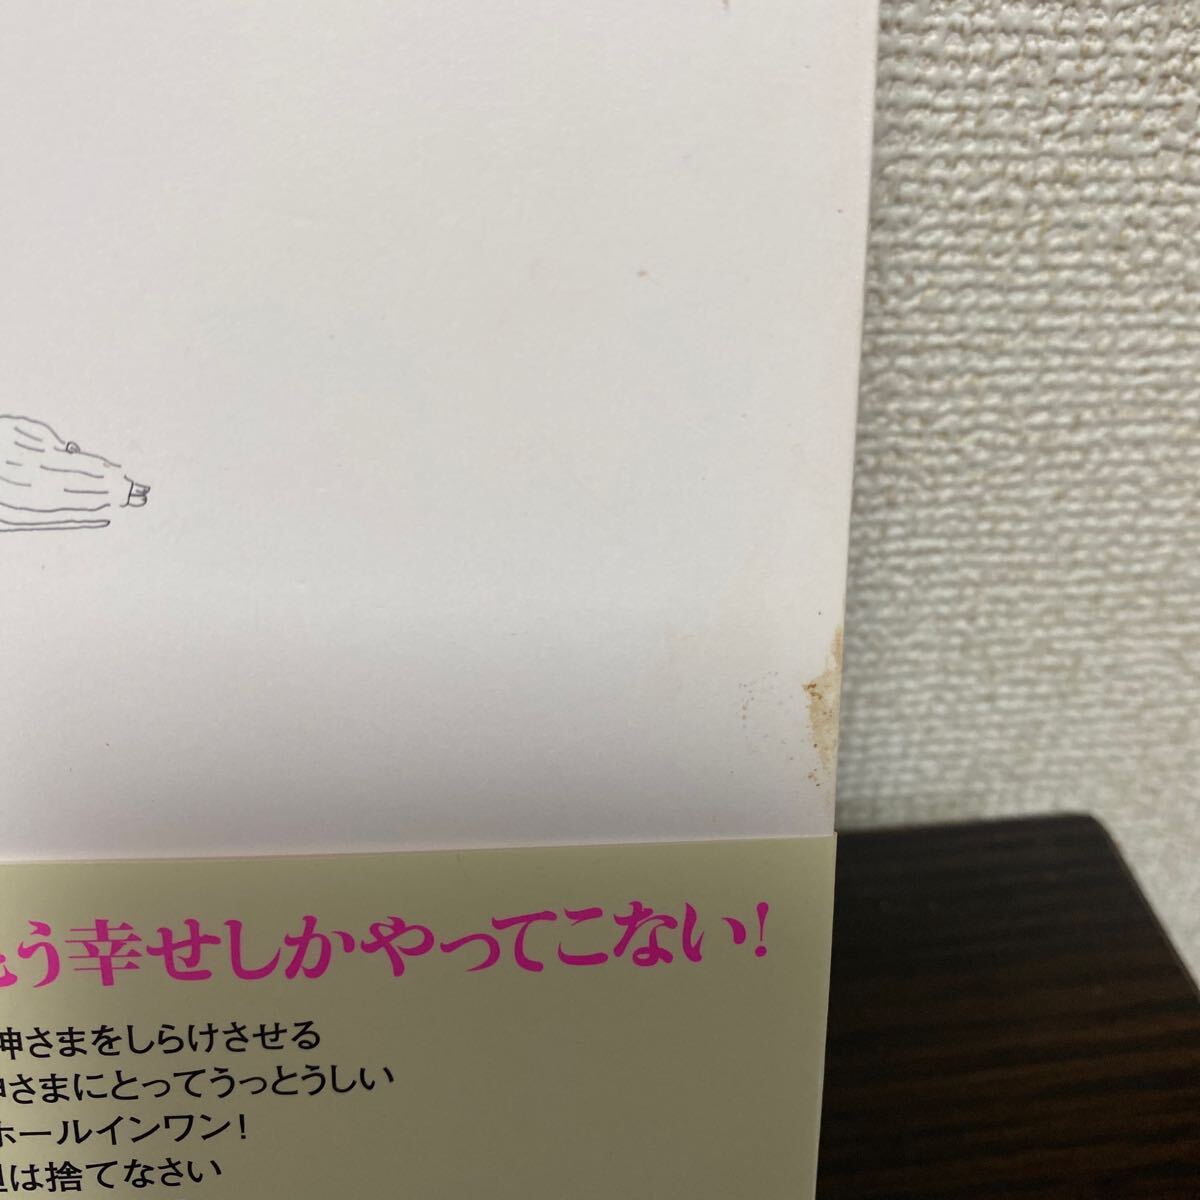 もう幸せしかやってこない!
神さまをしらけさせる
神さまにとってうっとうしい
ホールインワン!
は捨てなさい